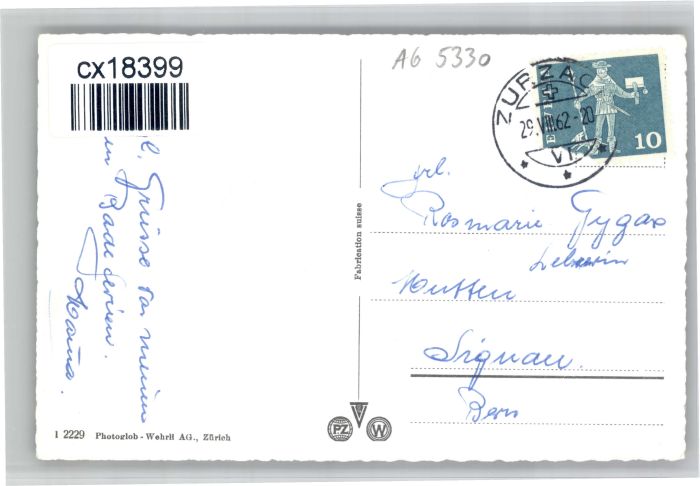 cx18399
AG 5330
ZURZACH
29.VIII.62-20
VI
HELVETIA
10
l. Grüsse von meinen
in Badeferien.
Mama.
Frl.
Rosmarie Gygax
Lehrerin
Mutten
Signau.
Bern
Fabrication suisse
PZ W
1 2229 Photoglob - Wehrli AG., Zürich